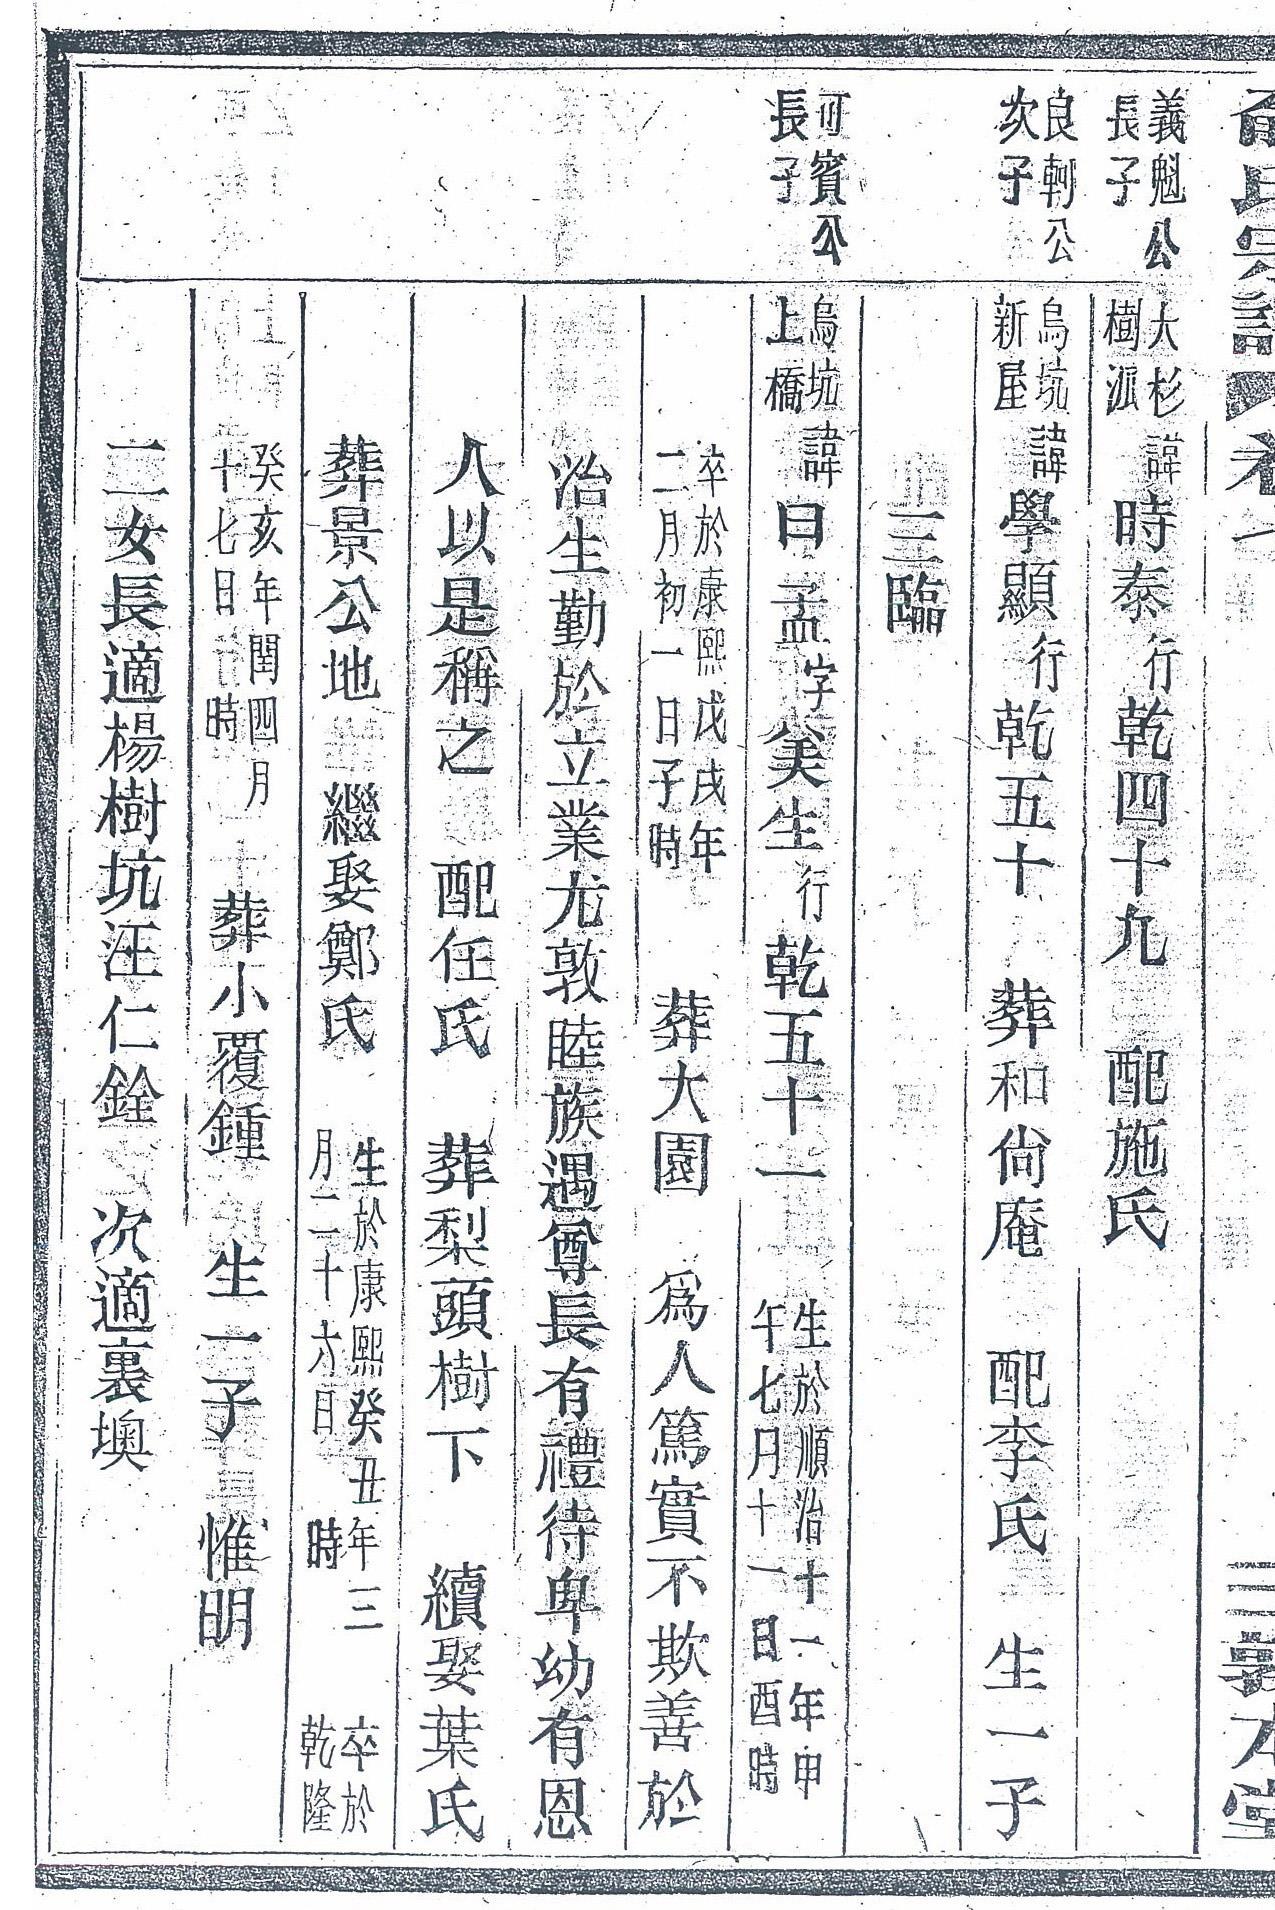 俞氏宗譜 卷
敦本堂
義魁公長子
大杉樹派 諱時泰 行乾四十九 配施氏
良軻公次子
烏坑新屋 諱學顯 行乾五十 葬和尙庵 配李氏 生一子
三臨
可賓公長子
烏坑上橋 諱曰孟 字美生 行乾五十一 生於順治十一年甲午七月十一日酉時
卒於康熙戊戌年二月初一日子時 葬大園 為人篤實不欺善於
治生勤於立業尤敦睦族遇尊長有禮待卑幼有恩
人以是稱之 配任氏 葬梨頭樹下 續娶葉氏
葬景公地 繼娶鄭氏 生於康熙癸丑年三月二十六日 時 卒於乾隆
癸亥年閏四月十七日 時 葬小覆鍾 生一子 惟明
二女長適楊樹坑汪仁銓 次適裏墺